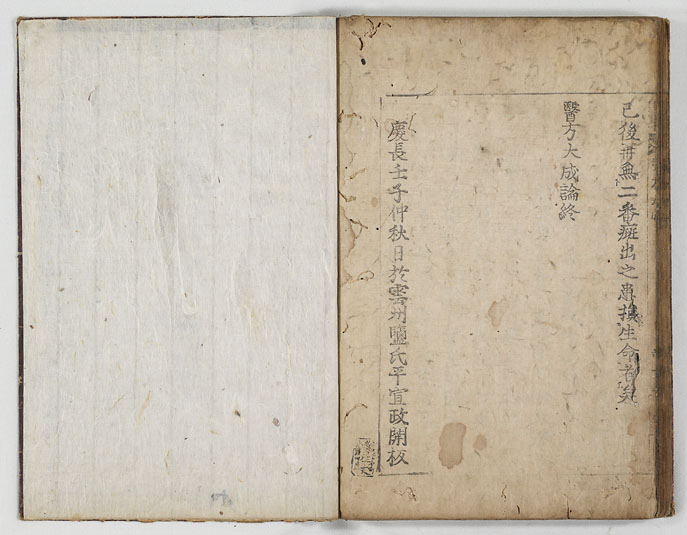 已後並無二番痘出之患損生命者矣
醫方大成論終
慶長壬子仲秋日於雲州鹽氏平宜政開板